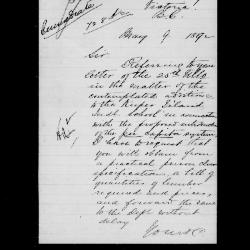 Victoria
B.C.
May 9 1892
Sir
Referring to your
letter of the 25th
in the matter of the
contemplated
to the Kuper Island
Indl. School in
with the proposed
of the per capita system
I have to request that
you will obtain from
a practical person clear
specifications, a bill of
quantities of lumber
required and prices,
and forward the same
to the Dept without
delay